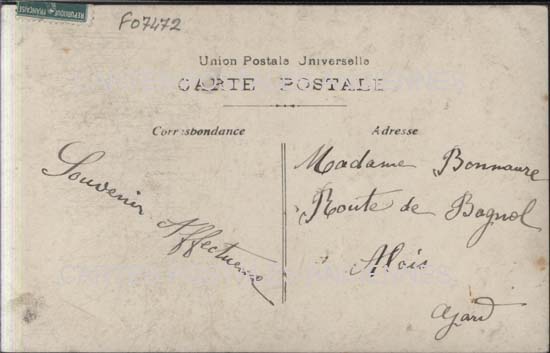 REPUBLIQUE FRANCAISE
F07472
Union Postale Universelle
CARTE POSTALE
Correspondance
Adresse
Souvenir
Affectueux
Madame Bonnaure
Route de Bagnol
Alais
Gard